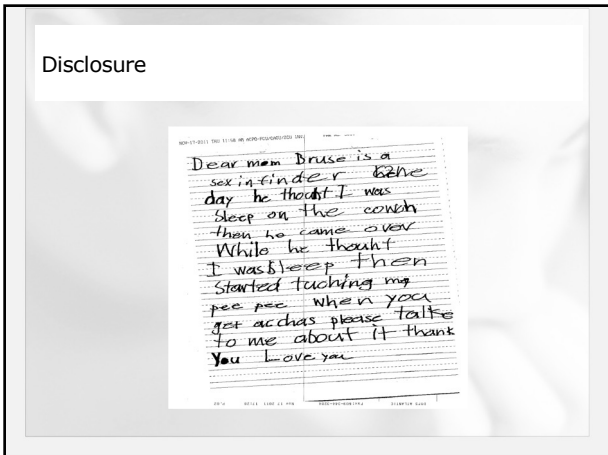 Disclosure
NOV-17-2011 THU 11:58 AM
Dear mom Bruse is a
sex infinder
day he thocht I was
Sleep on the cowch
then he came over
While he thouht
I was Sleep then
Started tuching my
pee pee when you
get acchas please talke
to me about it thank
You Love you